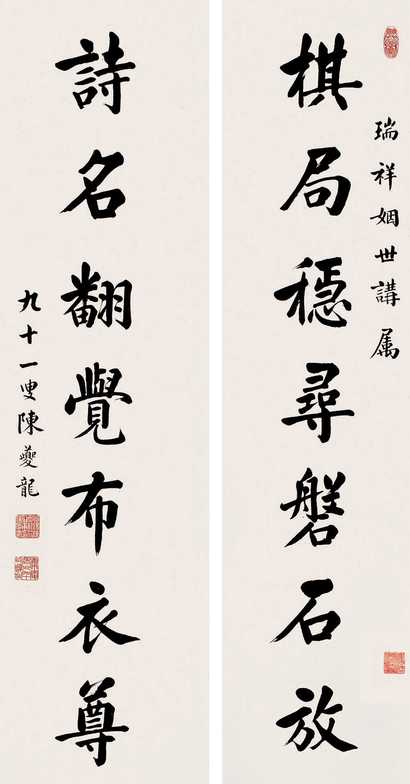 瑞祥姻世講属
棋局穩尋磐石放
詩名翻覺布衣尊
九十一叟陳夔龍